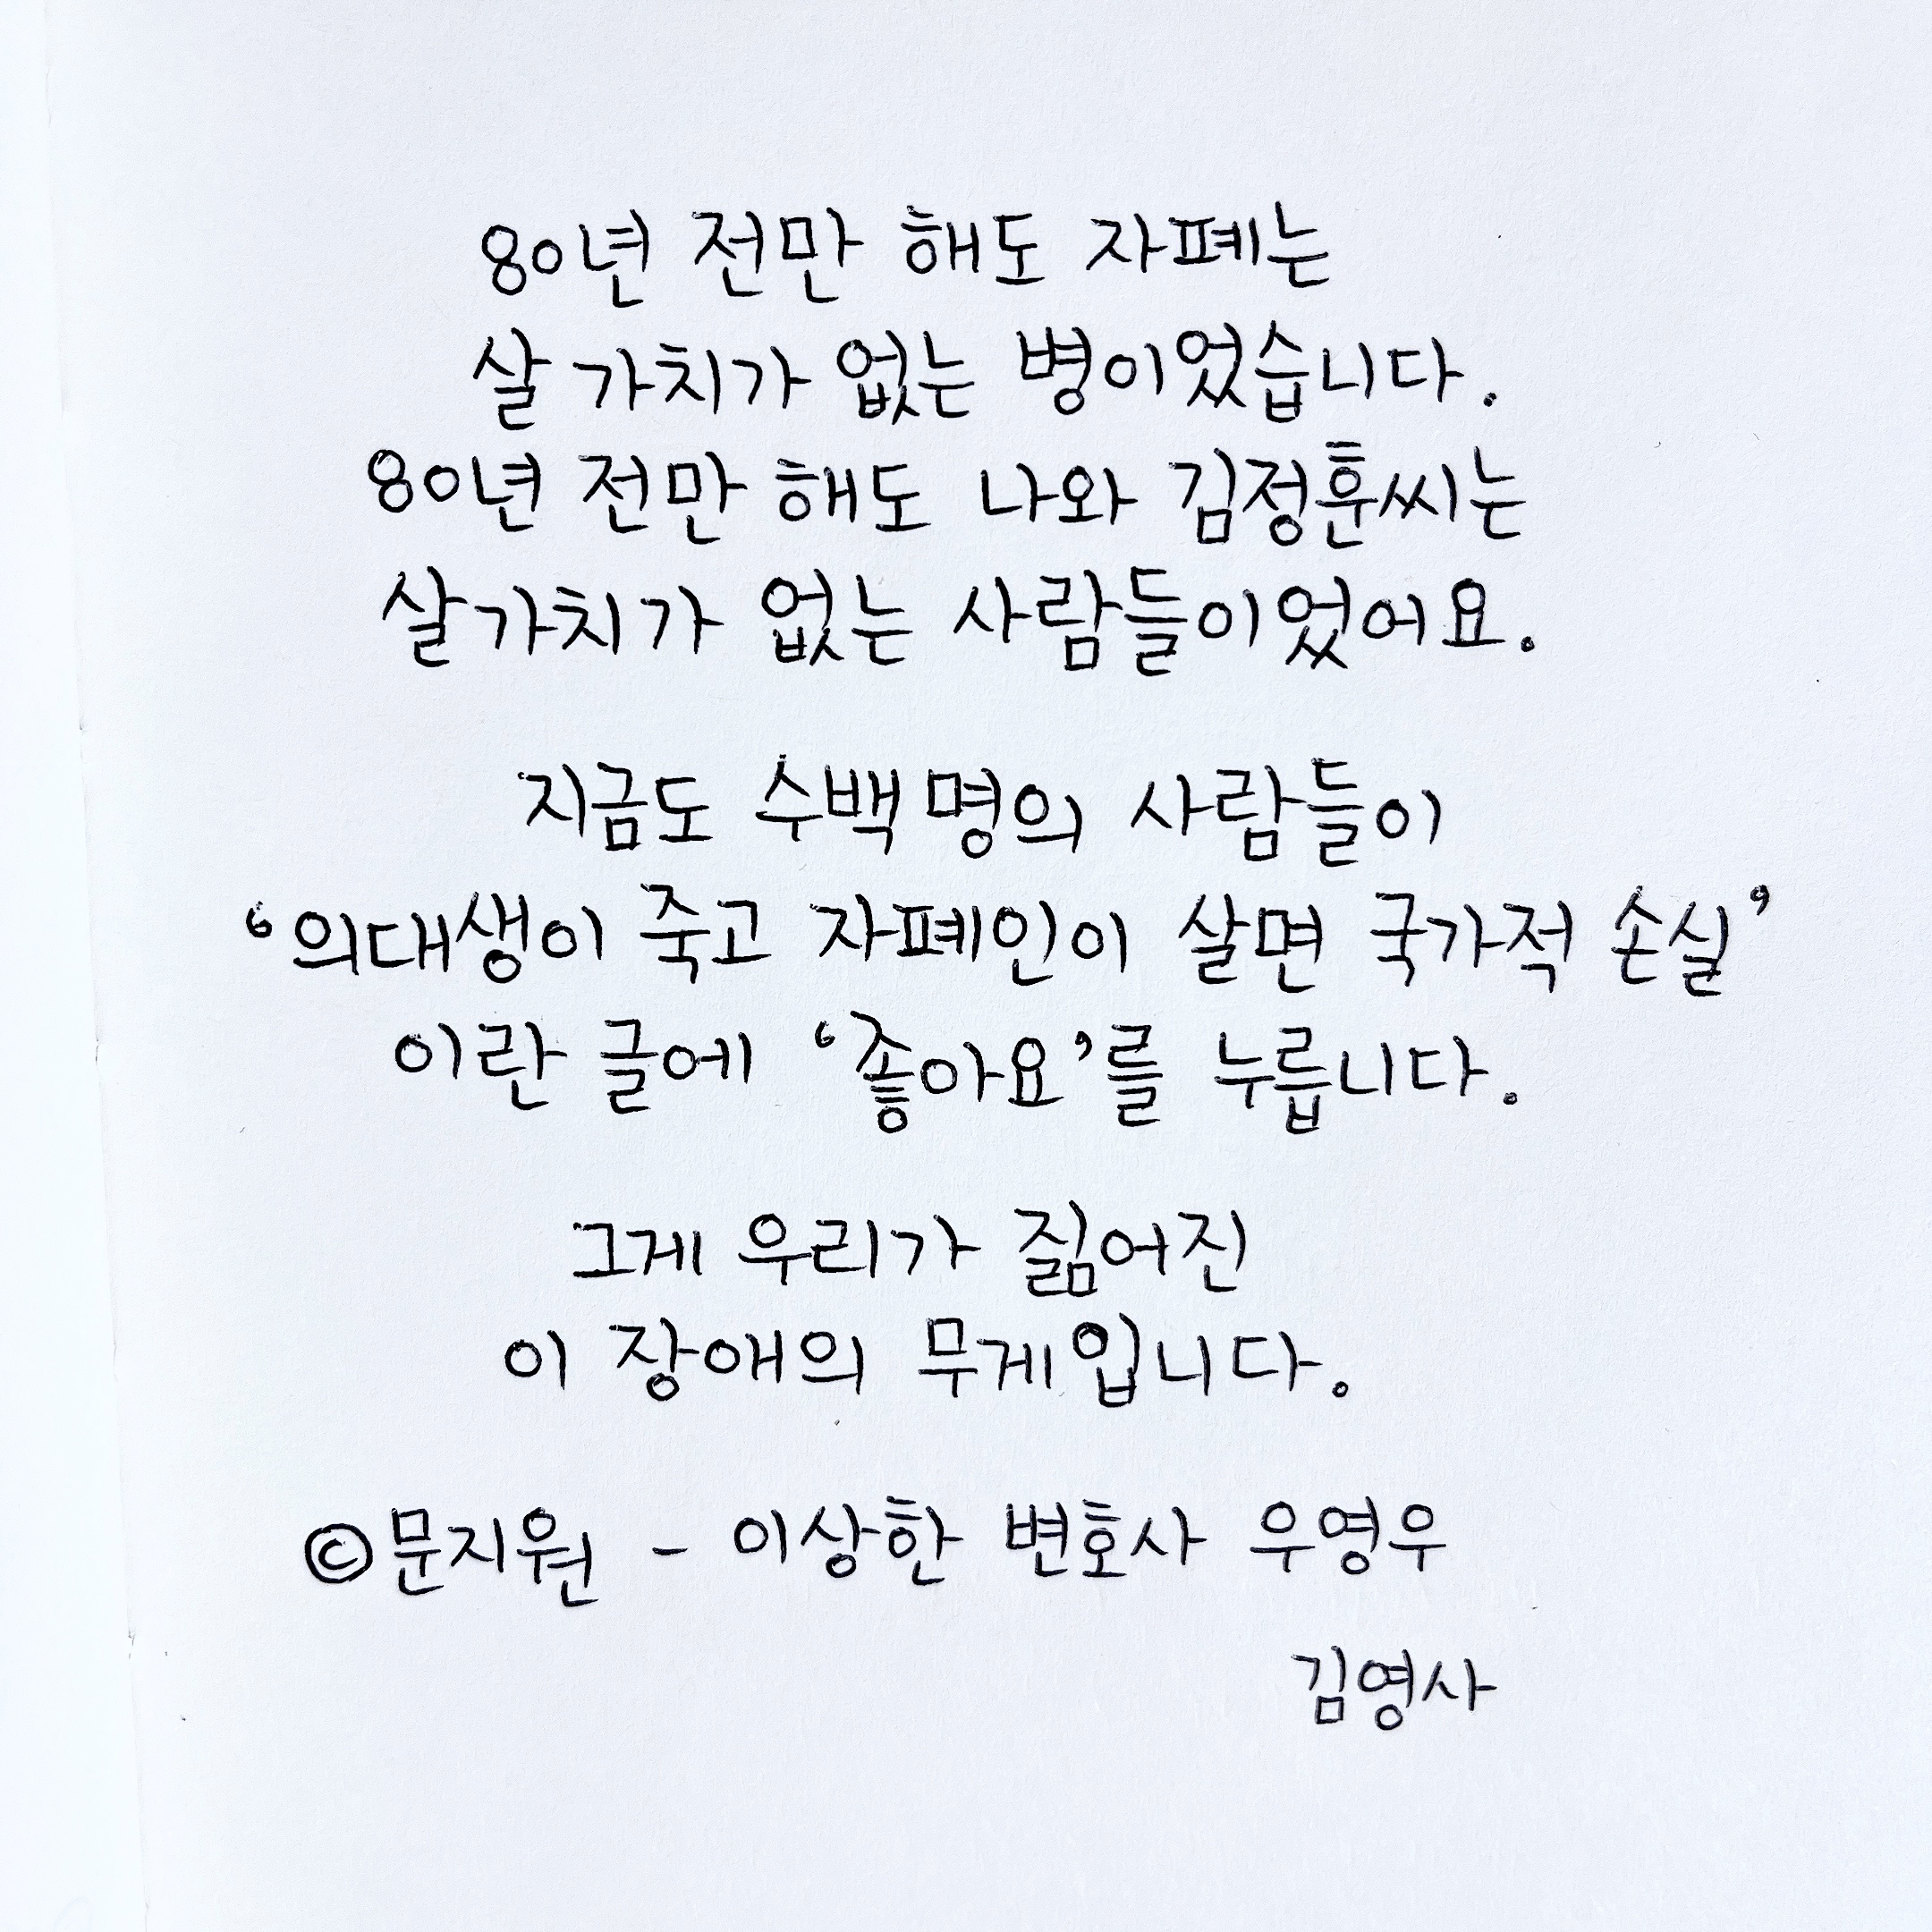 80년 전만 해도 자폐는
살 가치가 없는 병이었습니다.
80년 전만 해도 나와 김정훈씨는
살 가치가 없는 사람들이었어요.
지금도 수백 명의 사람들이
‘의대생이 죽고 자폐인이 살면 국가적 손실’
이란 글에 ‘좋아요’를 누릅니다.
그게 우리가 짊어진
이 장애의 무게입니다.
©문지원 - 이상한 변호사 우영우
김영사